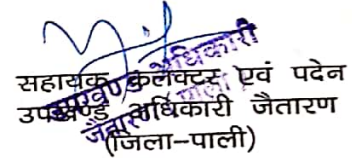 सहायक कलेक्टर एवं पदेन
उपखण्ड अधिकारी जैतारण
(जिला-पाली)
उपखण्ड अधिकारी
जैतारण (पाली)